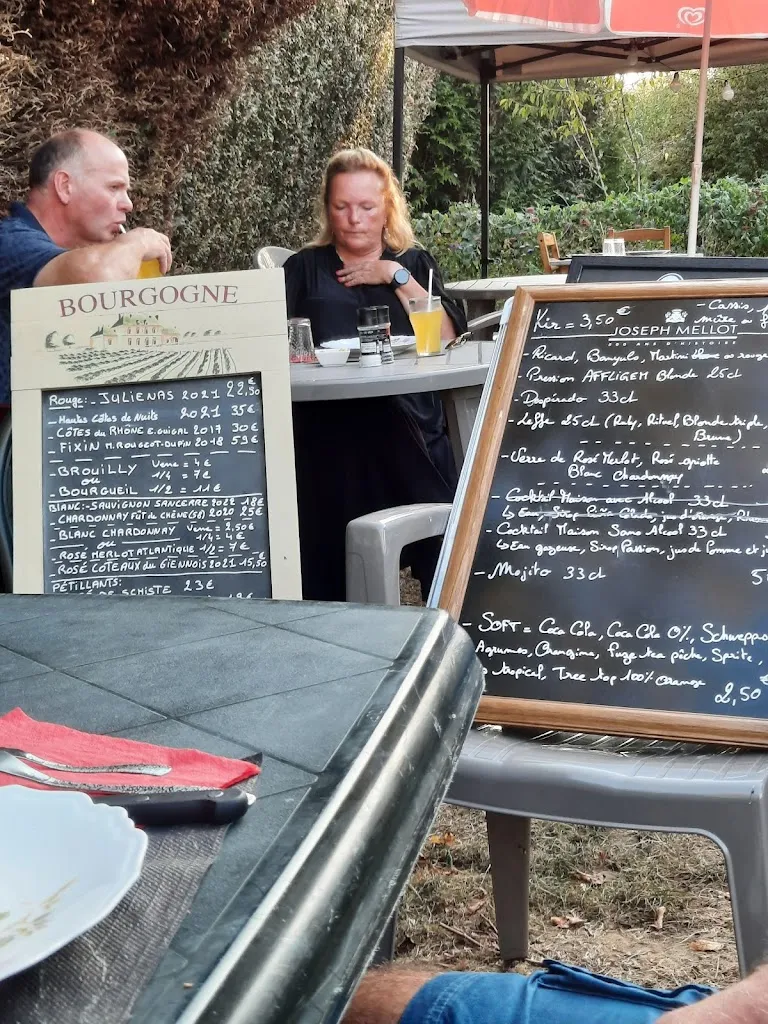 BOURGOGNE
Rouge: - JULIENAS 2021 22,50€
- Hautes Côtes de Nuits 2021 35€
- CÔTES du RHÔNE E. GUIGAL 2017 30€
- FIXIN M. ROUGEOT-DUPIN 2018 59€
- BROUILLY Verre = 4€
ou 1/4 = 7€
- BOURGUEIL 1/2 = 11€
BLANC: - SAUVIGNON SANCERRE 2022 18€
- CHARDONNAY FÛT de CHÊNE 2020 25€
BLANC CHARDONNAY Verre = 2,50€
ou 1/4 = 4€
- ROSÉ MERLOT ATLANTIQUE 1/2 = 7€
- ROSÉ COTEAUX du GIENNOIS 2021 15,50
PÉTILLANTS: 23€
DE SCHISTE
Kir = 3,50€
- Cassis,
JOSEPH MELLOT
- Ricard, Banyuls, Martini blanc ou rouge
- Pression AFFLIGEM Blonde 25cl
- Desperado 33cl
- Leffe 25cl (Ruby, Rituel, Blonde, triple,
Brune)
- Verre de Rosé Merlot, Rosé griotte
Blanc Chardonnay
- Cocktail Maison avec Alcool 33cl
- Cocktail Maison Sans Alcool 33cl
↳ Eau gazeuse, Sirop Passion, jus de Pomme et
- Mojito 33cl
- SOFT = Coca Cola, Coca Cola 0%, Schweppes
Agrumes, Orangina, fuze tea pêche, Sprite,
tropical, Tree top 100% orange
2,50€